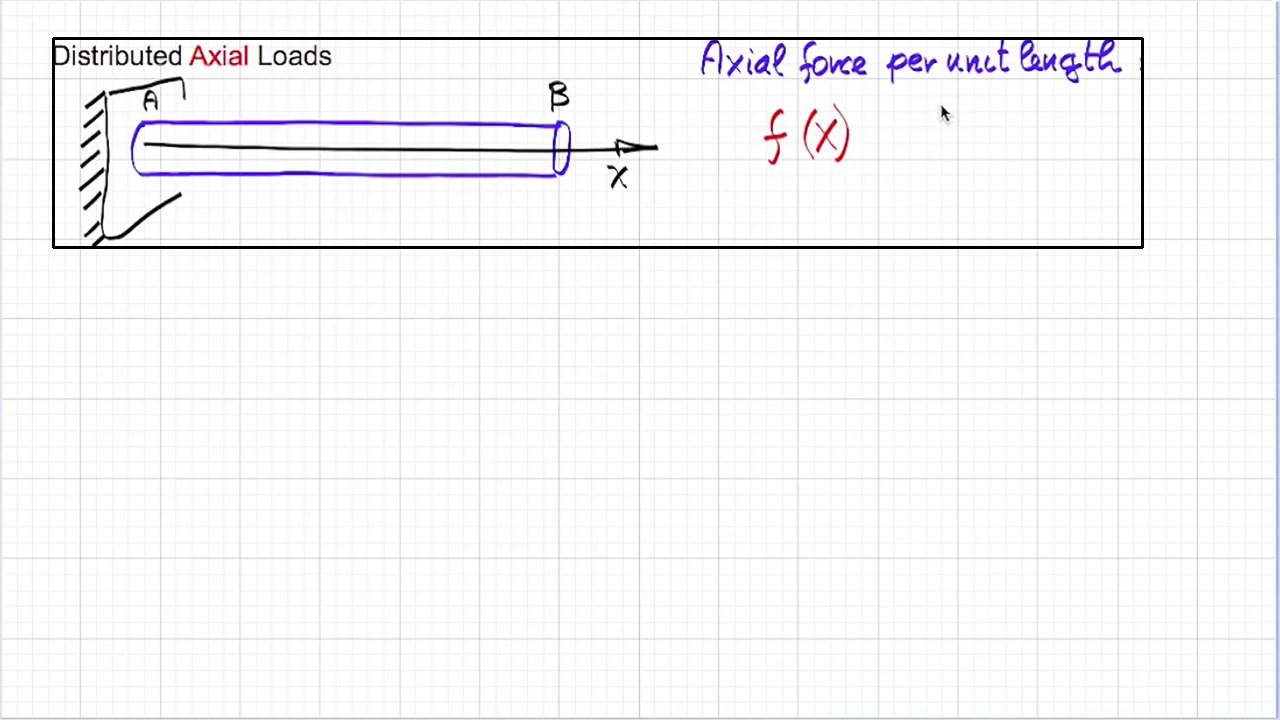 Distributed Axial Loads
Axial force per unit length :
A
B
f (x)
x